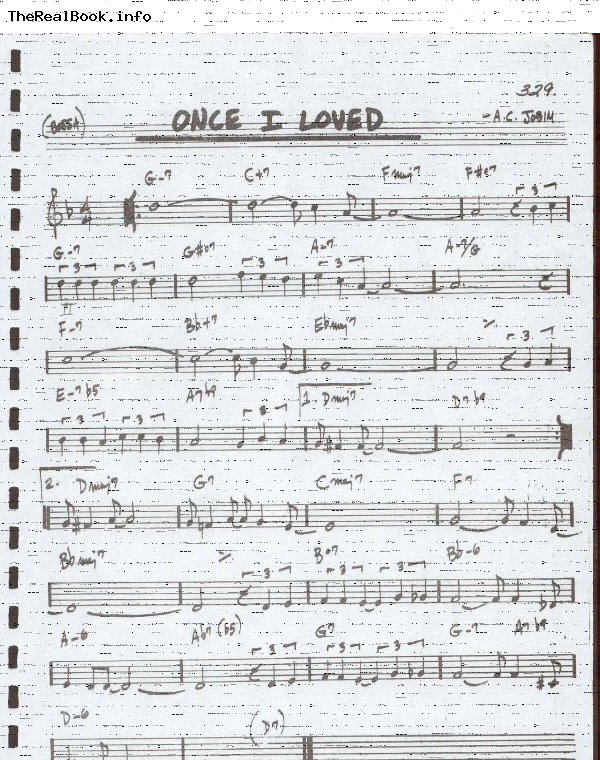 TheRealBook.info
329.
(BOSSA) ONCE I LOVED -A.C. JOBIM
G-7 C+7 Fmaj7 F#o7
3
G-7 G#o7 A-7 A-7/G
3 3 3 3
F-7 Bb+7 Ebmaj7 %
3
E-7b5 A7b9 1. Dmaj7 D7b9
3 3 3
2. Dmaj7 G7 Cmaj7 F7
Bbmaj7 % Bo7 Bb-6
3 3 3
A-6 Ab7(b5) G7 G-7 A7b9
3 3 3
D-6 (D7)